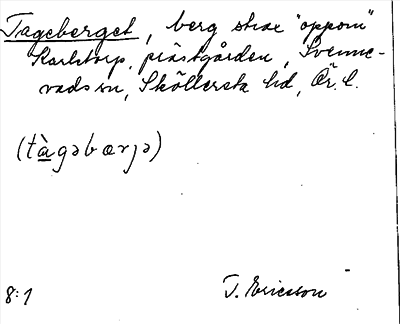 Tageberget, berg strax "oppom"
Karlstorp, prästgården, Svenne-
vads sn, Sköllersta hd, Ör. l.
(tàgəbærjə)
8:1
T. Ericsson